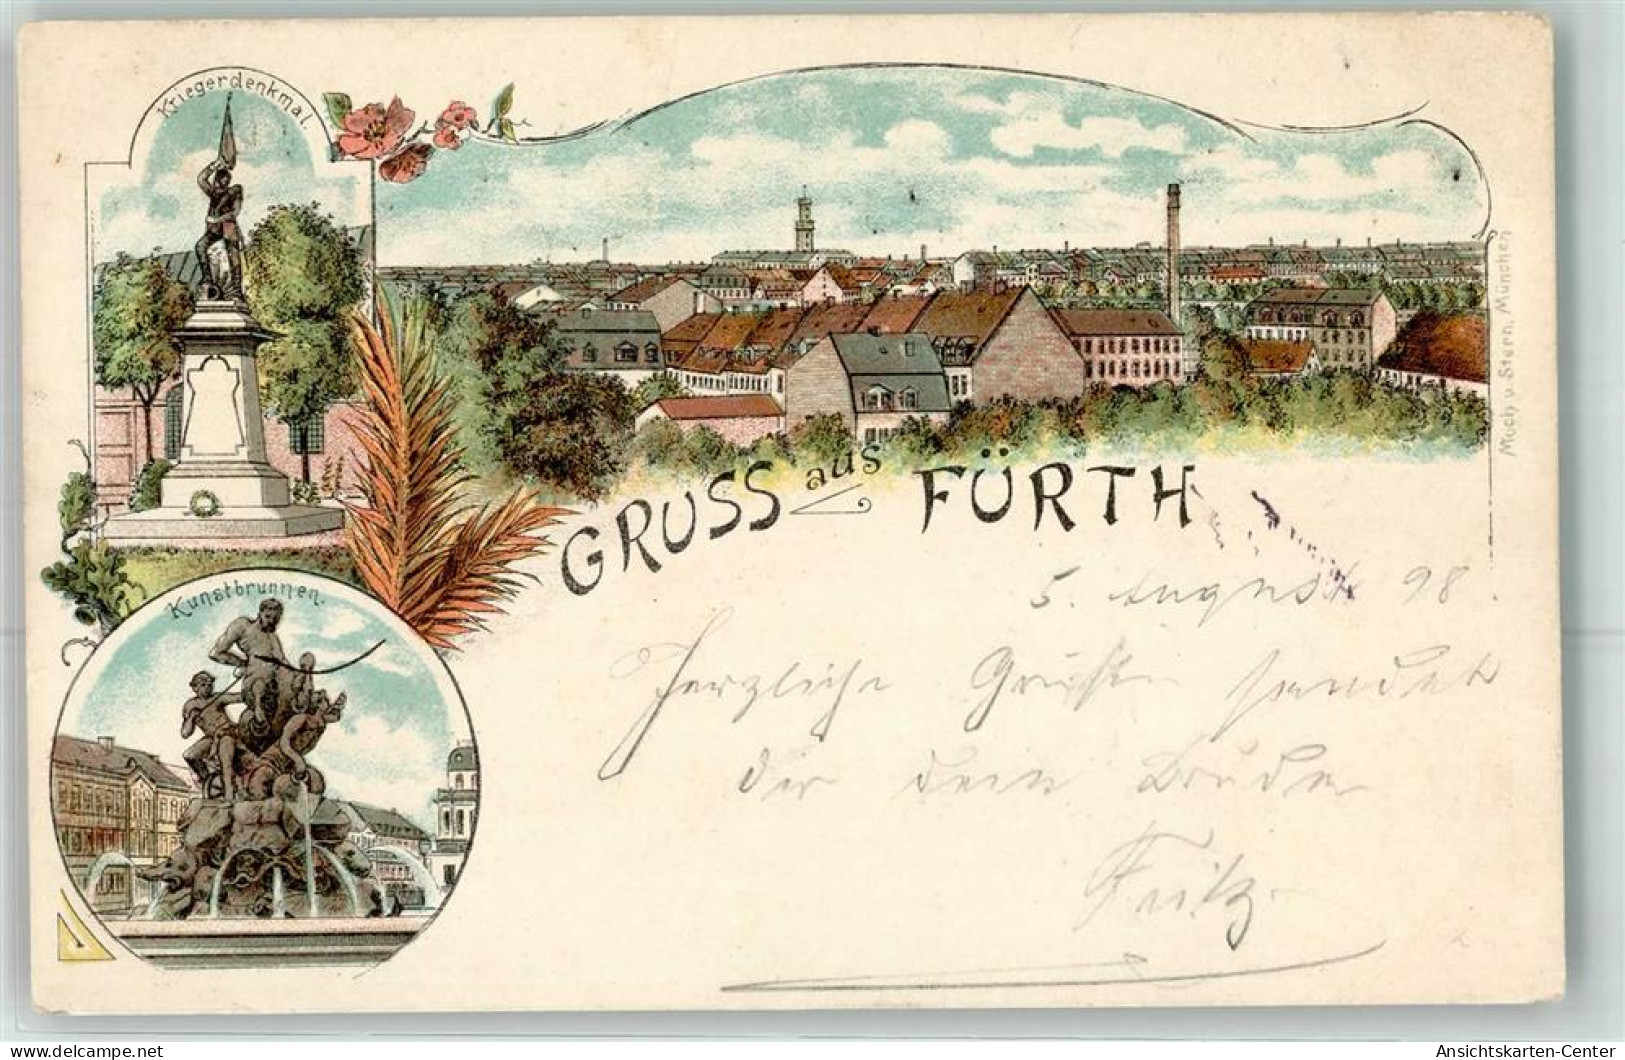 Kriegerdenkmal.
GRUSS aus FÜRTH
Kunstbrunnen.
Moch u. Stern, München
5. August 98.
Herzliche Grüße sendet
dir dein Bruder
Fritz.
Delcampe.net
Ansichtskarten-Center